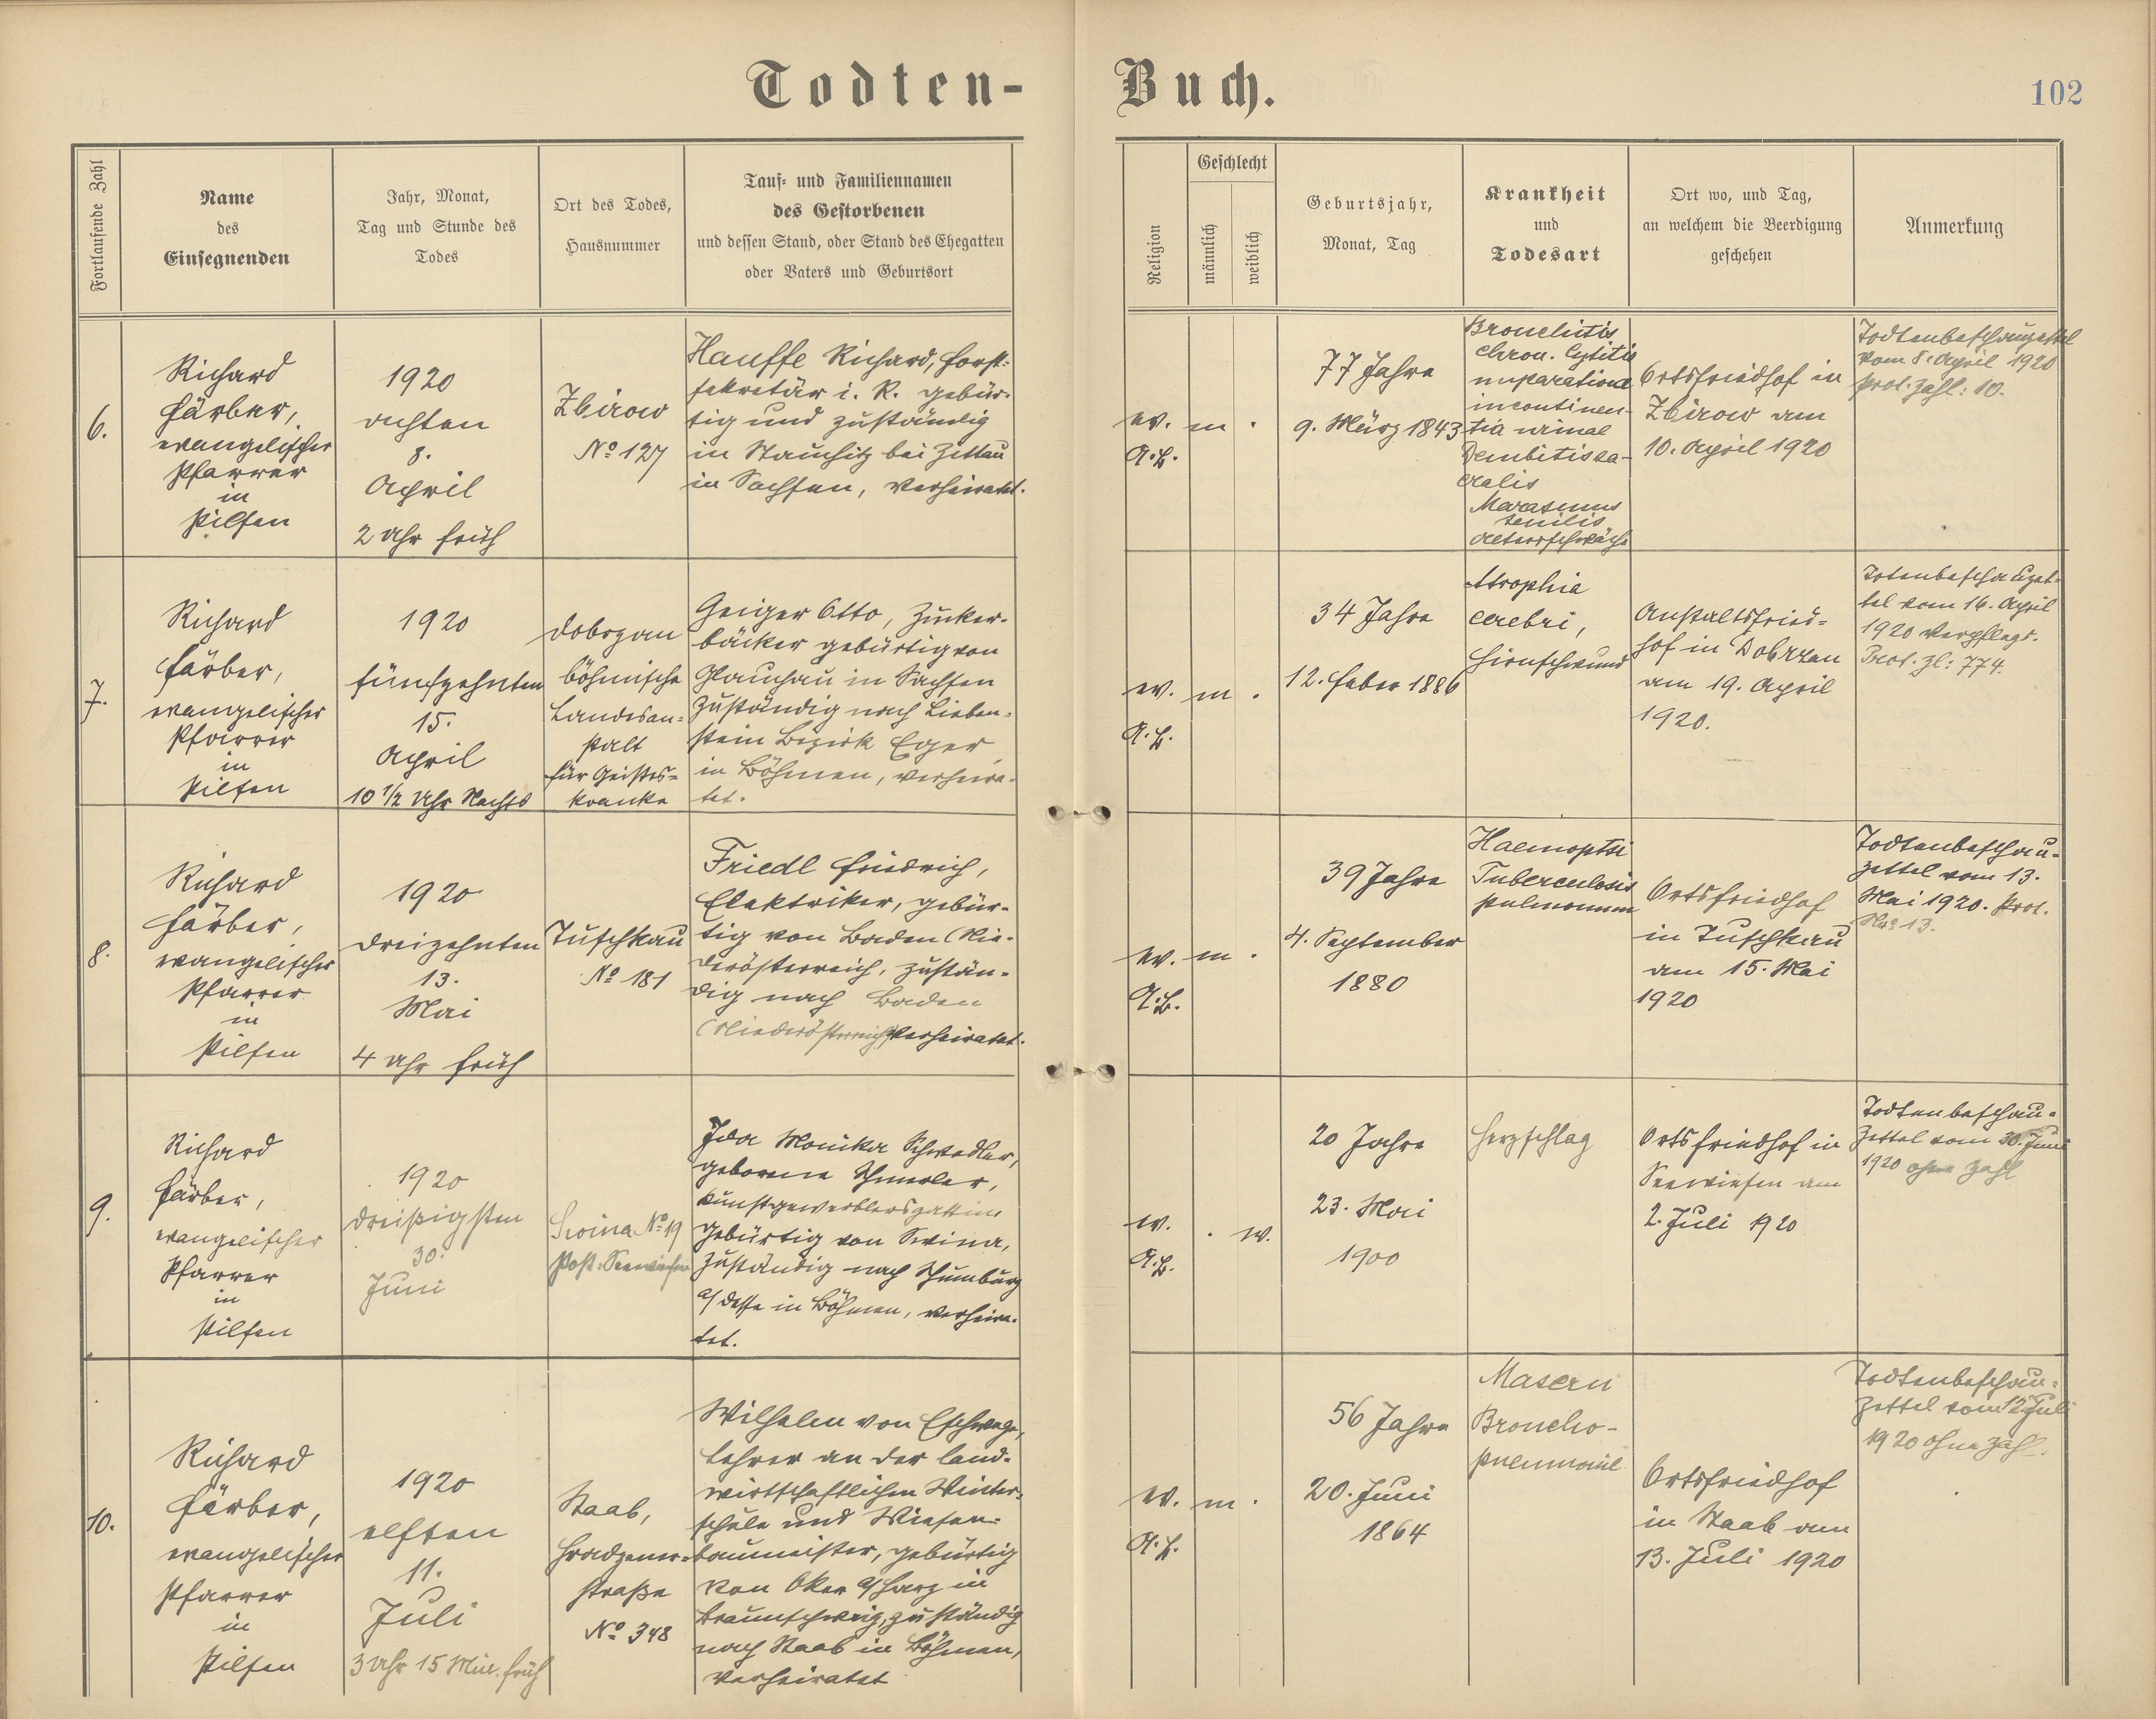 Todten-Buch.
102
Fortlaufende Zahl
Name
des
Einsegnenden
Jahr, Monat,
Tag und Stunde des
Todes
Ort des Todes,
Hausnummer
Tauf- und Familiennamen
des Gestorbenen
und dessen Stand, oder Stand des Ehegatten
oder Vaters und Geburtsort
Religion
Geschlecht
männlich
weiblich
Geburtsjahr,
Monat, Tag
Krankheit
und
Todesart
Ort wo, und Tag,
an welchem die Beerdigung
geschehen
Anmerkung
6.
Richard
Färber,
evangelischer
Pfarrer
in
Pilsen
1920
achten
8.
April
2 Uhr früh
Zbirow
No 127
Hauffe Richard, Forst-
sekretär i. R. gebür-
tig und zuständig
in bei Zittau
in Sachsen, verheiratet.
ev.
A.B.
m
.
77 Jahre
9. März 1843
Bronchitis
chron. Cystitis
incontinen-
tia urinae
sa-
cralis
Marasmus
senilis
Altersschwäche
Ortsfriedhof in
Zbirow am
10. April 1920
Todtenbeschauzettel
vom 8. April 1920
Prot. Zahl: 10.
7.
Richard
Färber,
evangelischer
Pfarrer
in
Pilsen
1920
fünfzehnten
15.
April
10 1/2 Uhr Nachts
Dobrzan
böhmische
Landesan-
stalt
für Geistes-
kranke
Geiger Otto, Zucker-
bäcker gebürtig von
Glauchau in Sachsen
zuständig nach Lieben-
stein Bezirk Eger
in Böhmen, verheira-
tet.
ev.
A.B.
m
.
34 Jahre
12. Feber 1886
Atrophia
cerebri,
Hirnschwund
Anstaltsfried-
hof in Dobrzan
am 19. April
1920.
Totenbeschauzet-
tel vom 16. April
1920 Verpflegs-
Prot. Zl: 774.
8.
Richard
Färber,
evangelischer
Pfarrer
in
Pilsen
1920
dreizehnten
13.
Mai
4 Uhr früh
Tuschkau
No 181
Friedl Friedrich,
Elektriker, gebür-
tig von Baden (Nie-
derösterreich, zustän-
dig nach Baden
(Niederösterreich) verheiratet.
ev.
A.B.
m
.
39 Jahre
4. September
1880
Haemoptoe
Tuberculosis
pulmonum
Ortsfriedhof
in Tuschkau
am 15. Mai
1920
Todtenbeschau-
zettel vom 13.
Mai 1920. Prot.
No 13.
9.
Richard
Färber,
evangelischer
Pfarrer
in
Pilsen
1920
dreißigsten
30.
Juni
Swina No 19
Post: Seewiesen
Ida Monika Schwedler,
geborene
Kunstgewerblersgattin
gebürtig von Swina,
zuständig nach Schumburg
a/ Desse in Böhmen, verheira-
tet.
ev.
A.B.
.
w.
20 Jahre
23. Mai
1900
Herzschlag
Ortsfriedhof in
Seewiesen am
2. Juli 1920
Todtenbeschau-
Zettel vom 30. Juni
1920 ohne Zahl
10.
Richard
Färber,
evangelischer
Pfarrer
in
Pilsen
1920
elften
11.
Juli
3 Uhr 15 Min. früh
Staab,
Hradzener-
straße
No 348
Wilhelm von Eschwege,
Lehrer an der land-
wirtschaftlichen Winter-
schule und Wiesen-
baumeister, gebürtig
von Oker a/ Harz in
Braunschweig, zuständig
nach Staab in Böhmen,
verheiratet
ev.
A.B.
m
.
56 Jahre
20. Juni
1864
Masern
Broncho-
pneumonie
Ortsfriedhof
in Staab am
13. Juli 1920
Todtenbeschau-
Zettel vom 12. Juli
1920 ohne Zahl.